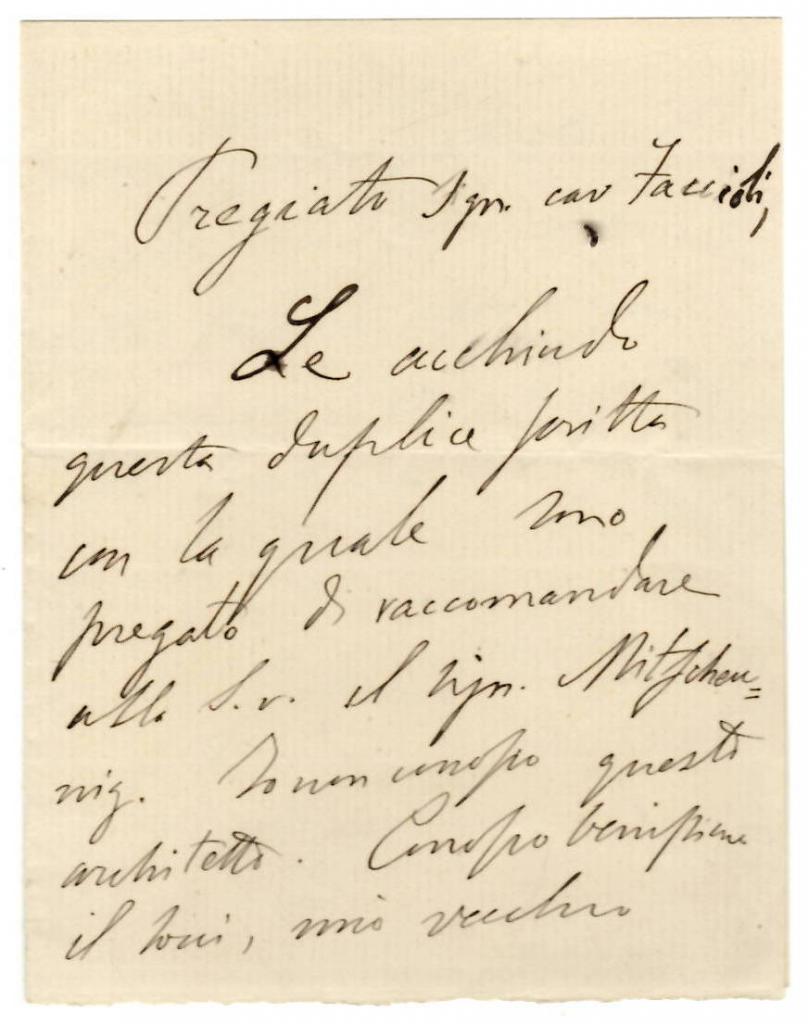 Pregiato Sgn. cav Faccioli,
Le acchiudo
questa duplice scritta
con la quale sono
pregato di raccomandare
alla S.v. il Sign. Mitscheu=
nig. Io non conosco questo
architetto. Conosco benissimo
il             , mio vecchio